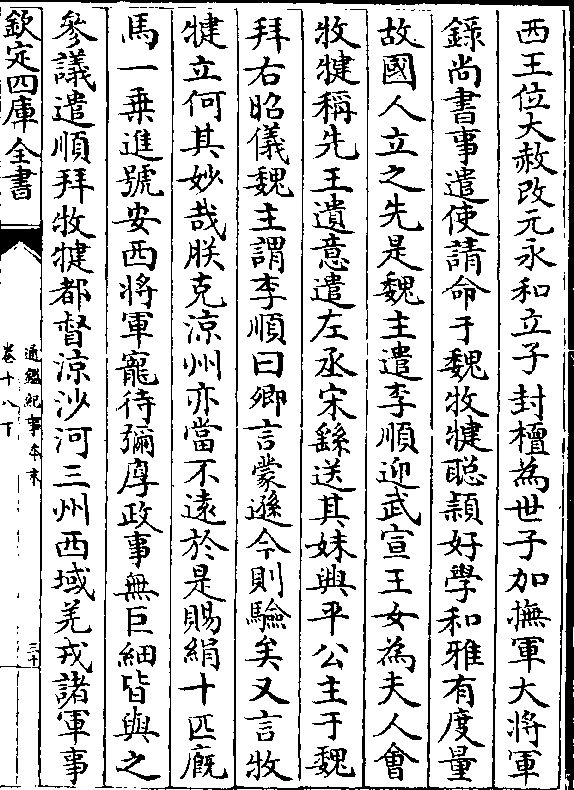 西王位大赦改元永和立子封檀為世子加撫軍大將軍
錄尚書事遣使請命于魏牧犍聰頴好學和雅有度量
故國人立之先是魏主遣李順迎武宣王女為夫人會
牧犍稱先王遺意遣左丞宋繇送其妹興平公主于魏
拜右昭儀魏主謂李順曰卿言蒙遜今則驗矣又言牧
犍立何其妙哉朕克涼州亦當不遠於是賜絹十匹廐
馬一乗進號安西將軍寵待彌厚政事無巨細皆與之
參議遣順拜牧犍都督涼沙河三州西域羌戎諸軍事
欽定四庫全書
通鑑紀事本末
卷十八下
三十